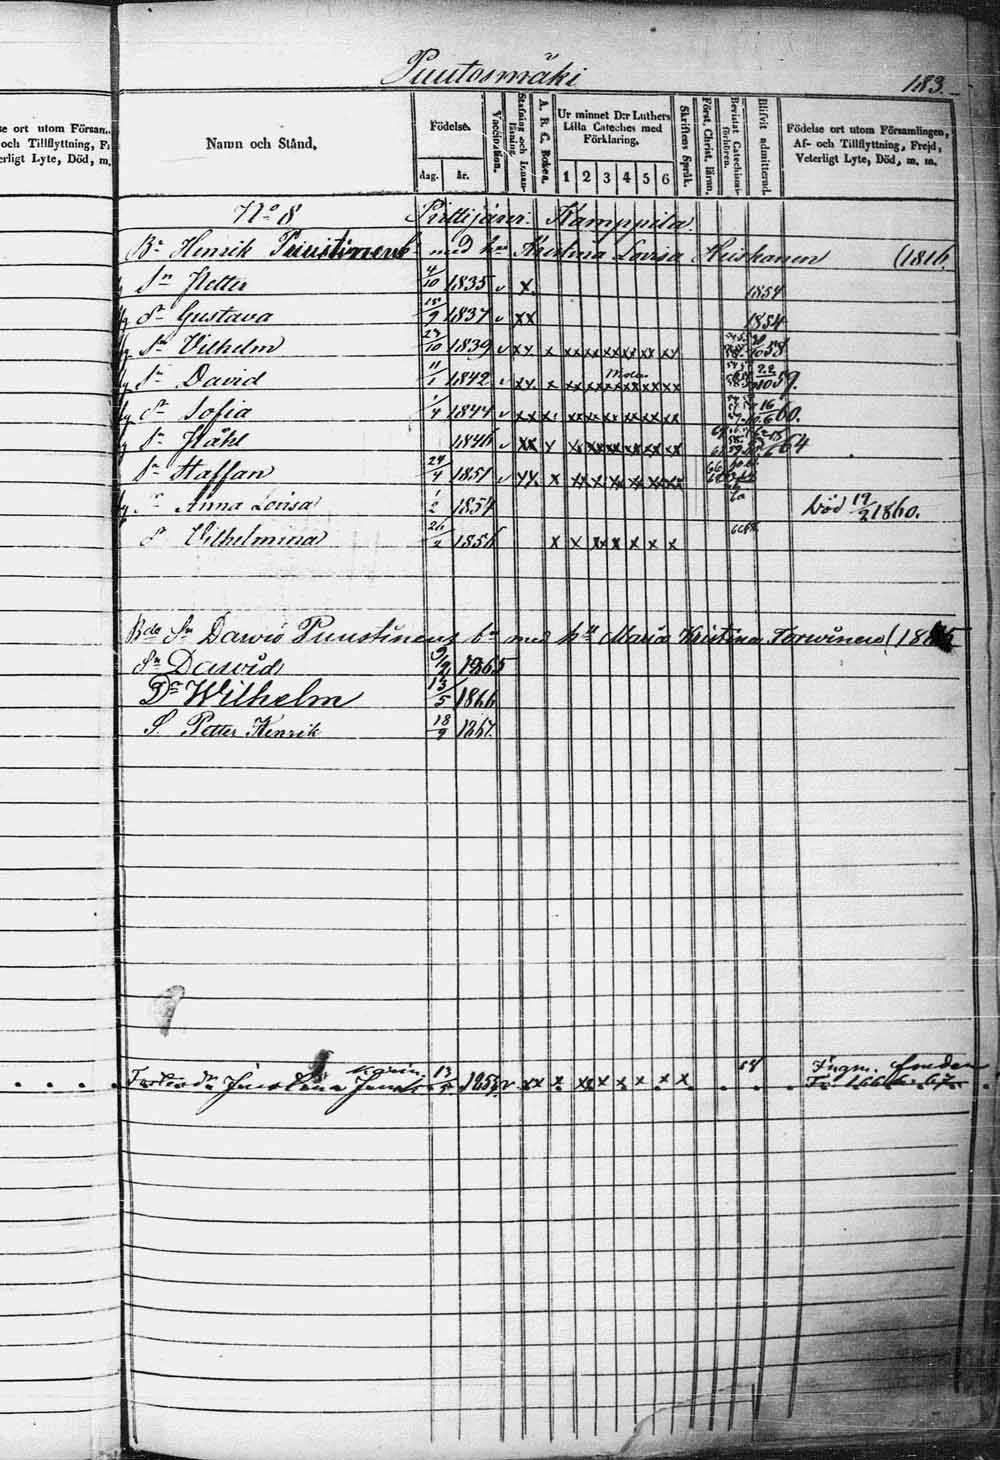 Puutosmäki
183.
se ort utom Försam..
och Tillflyttning, F
erligt Lyte, Död, m.
Namn och Stånd,
Födelse.
dag. år.
Vaccination.
Stafning och Innan-läsning.
A. B. C. Boken.
Ur minnet D:r Luthers
Lilla Catechес med
Förklaring,
1 2 3 4 5 6
Skriftens Språk.
Först. Christ. lärän.
Bevistat Catechismi-förhören.
Blifvit admitterad.
Födelse ort utom Församlingen,
Af- och Tillflyttning, Frejd,
Veterligt Lyte, Död, m. m.
No 8 Kamppila
Bn Henrik Puustinens med hu Kristina Lovisa Heiskanen (1816.
Sn Petter 4/10 1835 v x. 1854
Dr Gustava 15/9 1837 v xx 1854
Sn Vilhelm 27/10 1839 v xx x xx xx xx xx xx xx 58
Sn David 11/1 1842 v xx. x xx xx xx xx xx xx 22/10 59.
Dr Sofia 1/4 1844 v xx x xx xx xx xx xx xx 60.
Sn Påhl 1846 v xx x xx xx xx xx xx xx 64
Sn Staffan 24/4 1851 v xx. x xx xx xx xx xx xx
Dr Anna Lovisa 1/2 1854 Död 19/2 1860.
Dr Vilhelmina 26/2 1856 x x xx x x x x
Bde Sn David Puustinens bn med hu Maria Kristina Torvinen (1845
Sn David 9/9 1865
Dr Wilhelm 13/5 1866
S. Petter Henrik 18/9 1867.
1853 v xx x xx x x x x x x 58